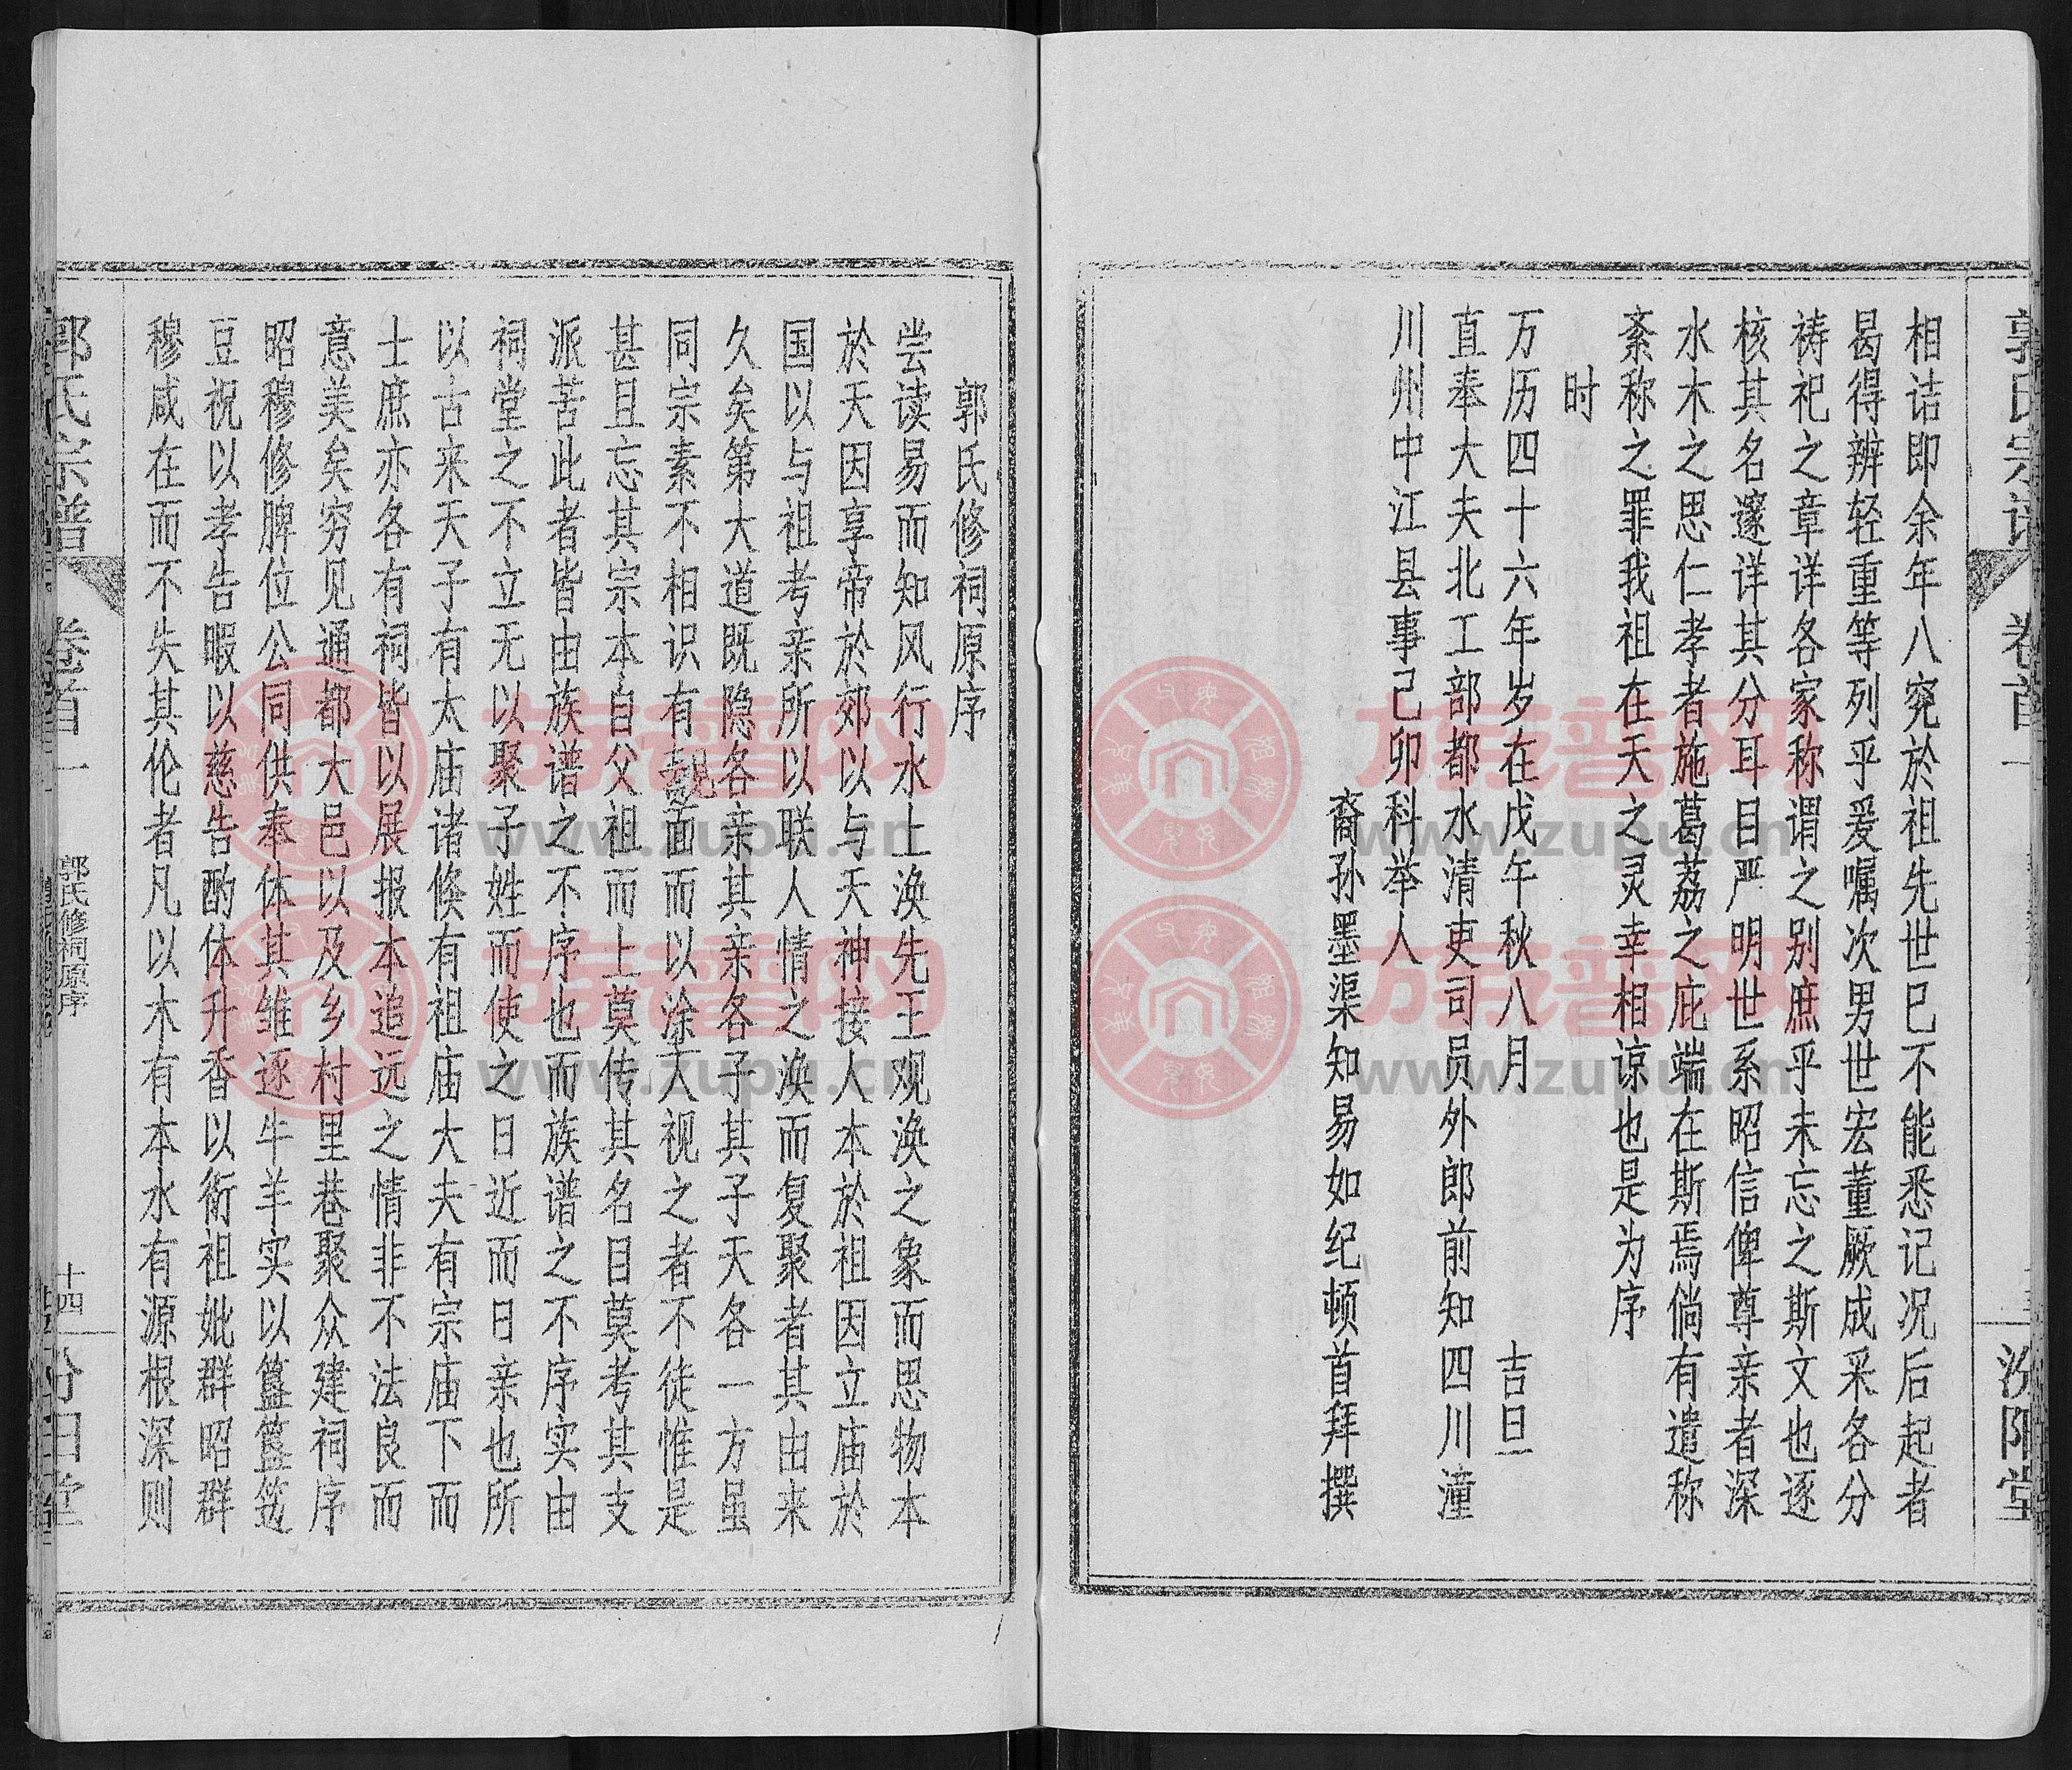 郭氏宗谱 卷首一 汾阳堂
相诘即余年八究於祖先世巳不能悉记况后起者
曷得辨轻重等列乎爰嘱次男世宏董厥成采各分
祷祀之章详各家称谓之别庶乎未忘之斯文也逐
核其名邃详其分耳目严明世系昭信俾尊亲者深
水木之思仁孝者施葛荔之庇端在斯焉倘有遣称
紊称之罪我祖在天之灵幸相谅也是为序
时
万历四十六年岁在戊午秋八月 吉旦
直奉大夫北工部都水清吏司员外郎前知四川潼
川州中江县事己卯科举人
裔孙墨渠知易如纪顿首拜撰
郭氏修祠原序
尝读易而知风行水上涣先王观涣之象而思物本
於天因享帝於郊以与天神接人本於祖因立庙於
国以与祖考亲所以联人情之涣而复聚者其由来
久矣第大道既隐各亲其亲各子其子天各一方虽
同宗素不相识有觌面而以涂人视之者不徒惟是
甚且忘其宗本自父祖而上莫传其名目莫考其支
派苦此者皆由族谱之不序也而族谱之不序实由
祠堂之不立无以聚子姓而使之日近而日亲也所
以古来天子有太庙诸倏有祖庙大夫有宗庙下而
士庶亦各有祠皆以展报本追远之情非不法良而
意美矣穷见通都大邑以及乡村里巷聚众建祠序
昭穆修脾位公同供奉体其雏逐牛羊实以簋簋笾
豆祝以孝告暇以慈告酌体升香以衎祖妣群昭群
穆咸在而不失其伦者凡以木有本水有源根深则
郭氏宗普 卷首一 郭氏修祠原序 十四